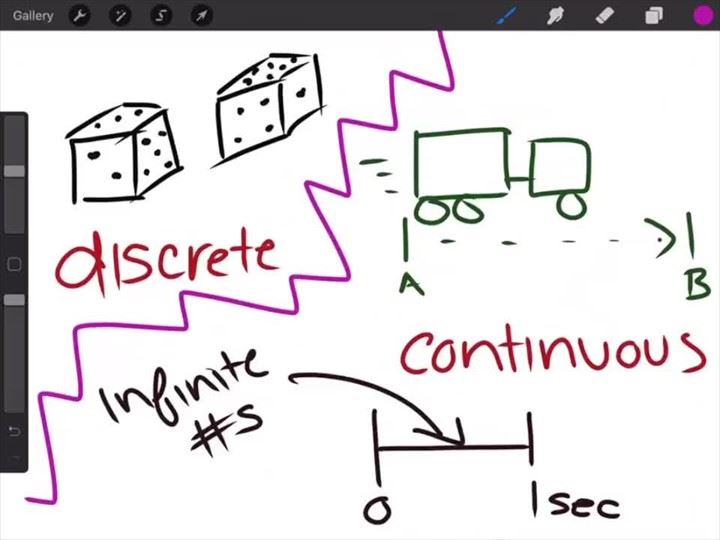 Gallery
discrete
A
B
continuous
Infinite
#s
0
1 sec